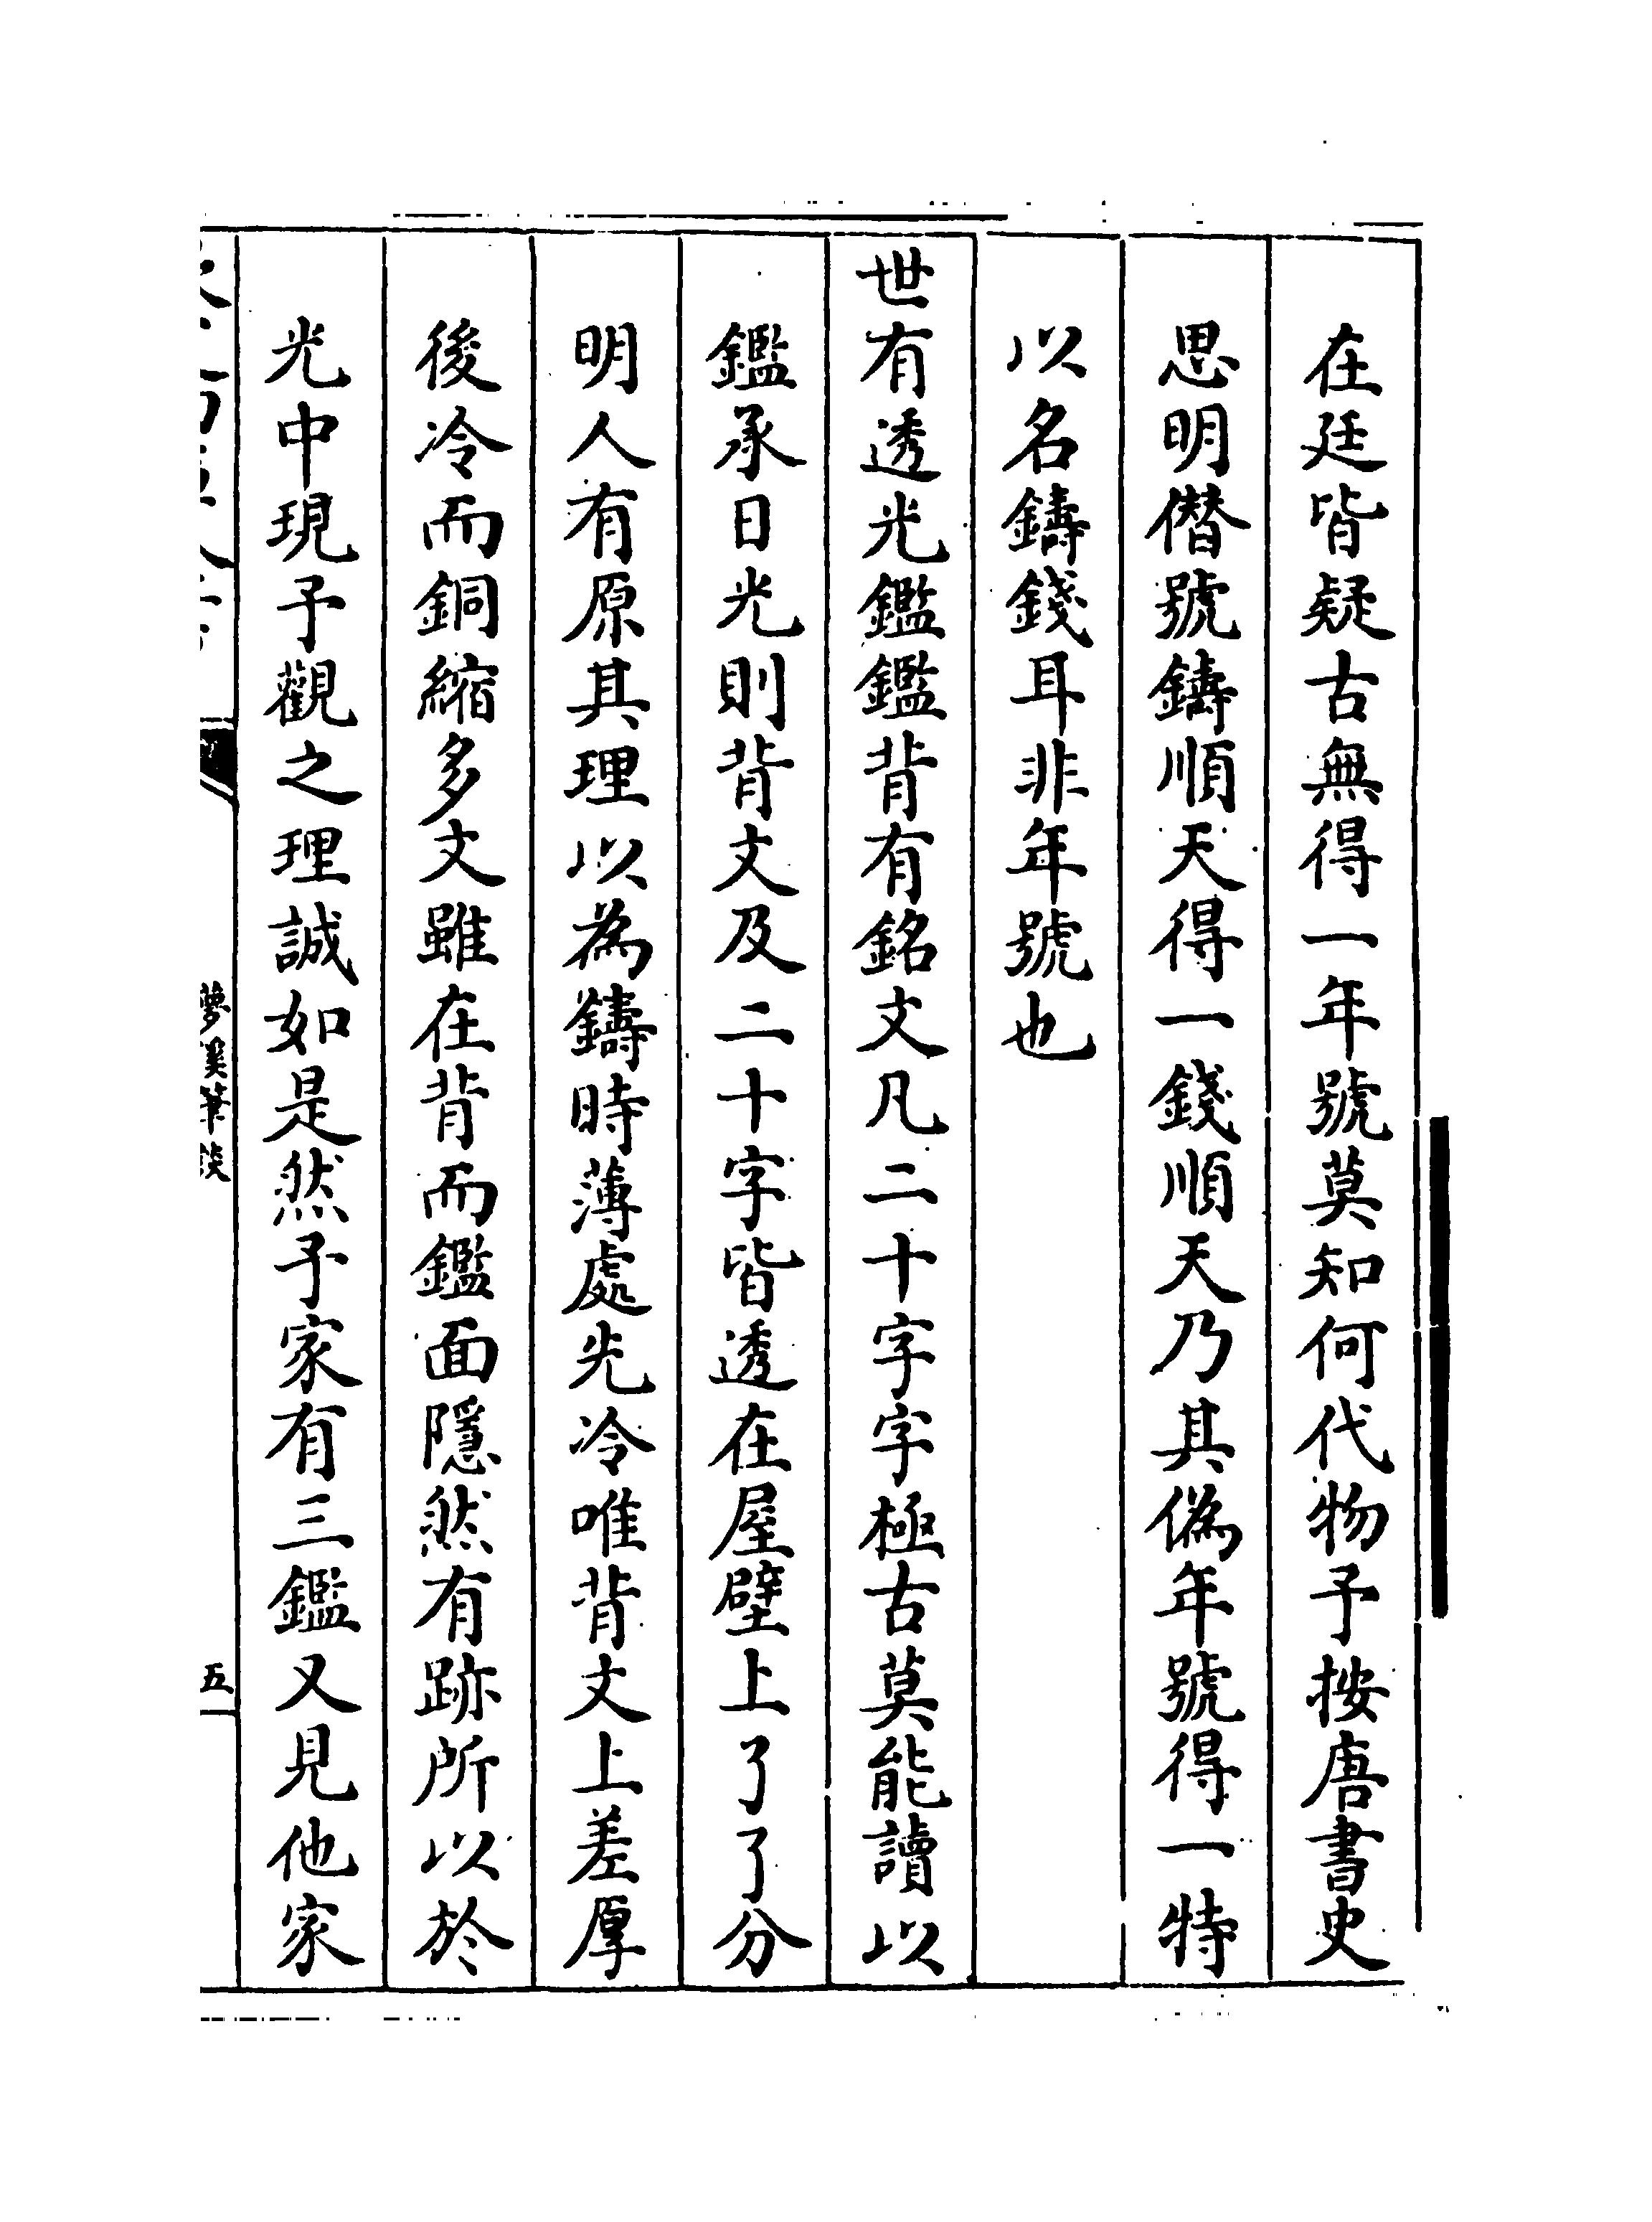 在廷皆疑古無得一年號莫知何代物予按唐書史
思明僭號鑄順天得一錢順天乃其偽年號得一特
以名鑄錢耳非年號也
世有透光鑑鑑背有銘文凡二十字字極古莫能讀以
鑑承日光則背文及二十字皆透在屋壁上了了分
明人有原其理以為鑄時薄處先冷唯背文上差厚
後冷而銅縮多文雖在背而鑑面隱然有跡所以於
光中現予觀之理誠如是然予家有三鑑又見他家
夢溪筆談
五